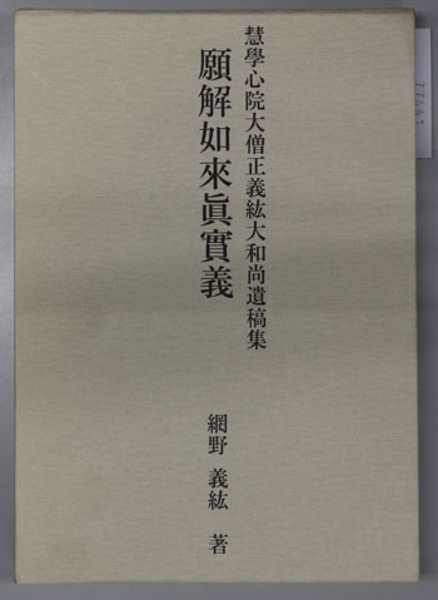 慧學心院大僧正義紘大和尚遺稿集
願解如來眞實義
網野 義紘 著